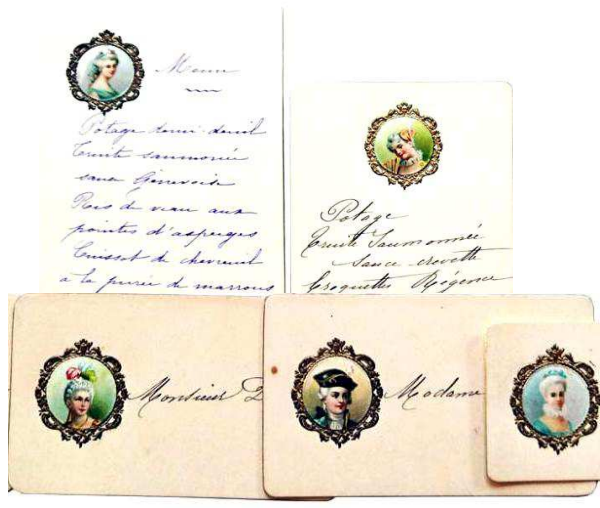 Menu
Potage demi-deuil
Truite saumonée
sauce Génevoise
Ris de veau aux
pointes d'asperges
Cuissot de chevreuil
à la purée de marrons
Potage
Truite Saumonnée
Sauce crevette
Croquettes Régence
Monsieur
Madame